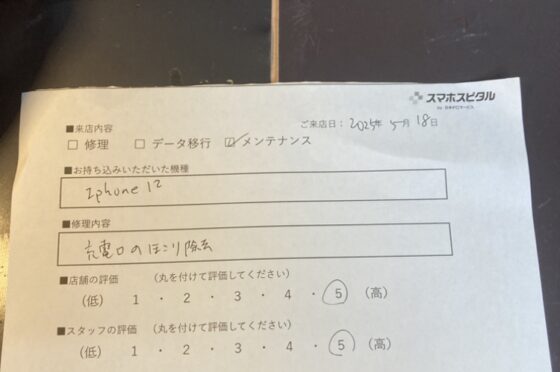 スマホスピタル
by 日本PCサービス
■来店内容
ご来店日: 2025年 5月 18日
□ 修理 □ データ移行 ☑ メンテナンス
■お持ち込みいただいた機種
Iphone 12
■修理内容
充電口のほこり除去
■店舗の評価 (丸を付けて評価してください)
(低) 1 ・ 2 ・ 3 ・ 4 ・ 5 (高)
■スタッフの評価 (丸を付けて評価してください)
(低) 1 ・ 2 ・ 3 ・ 4 ・ 5 (高)